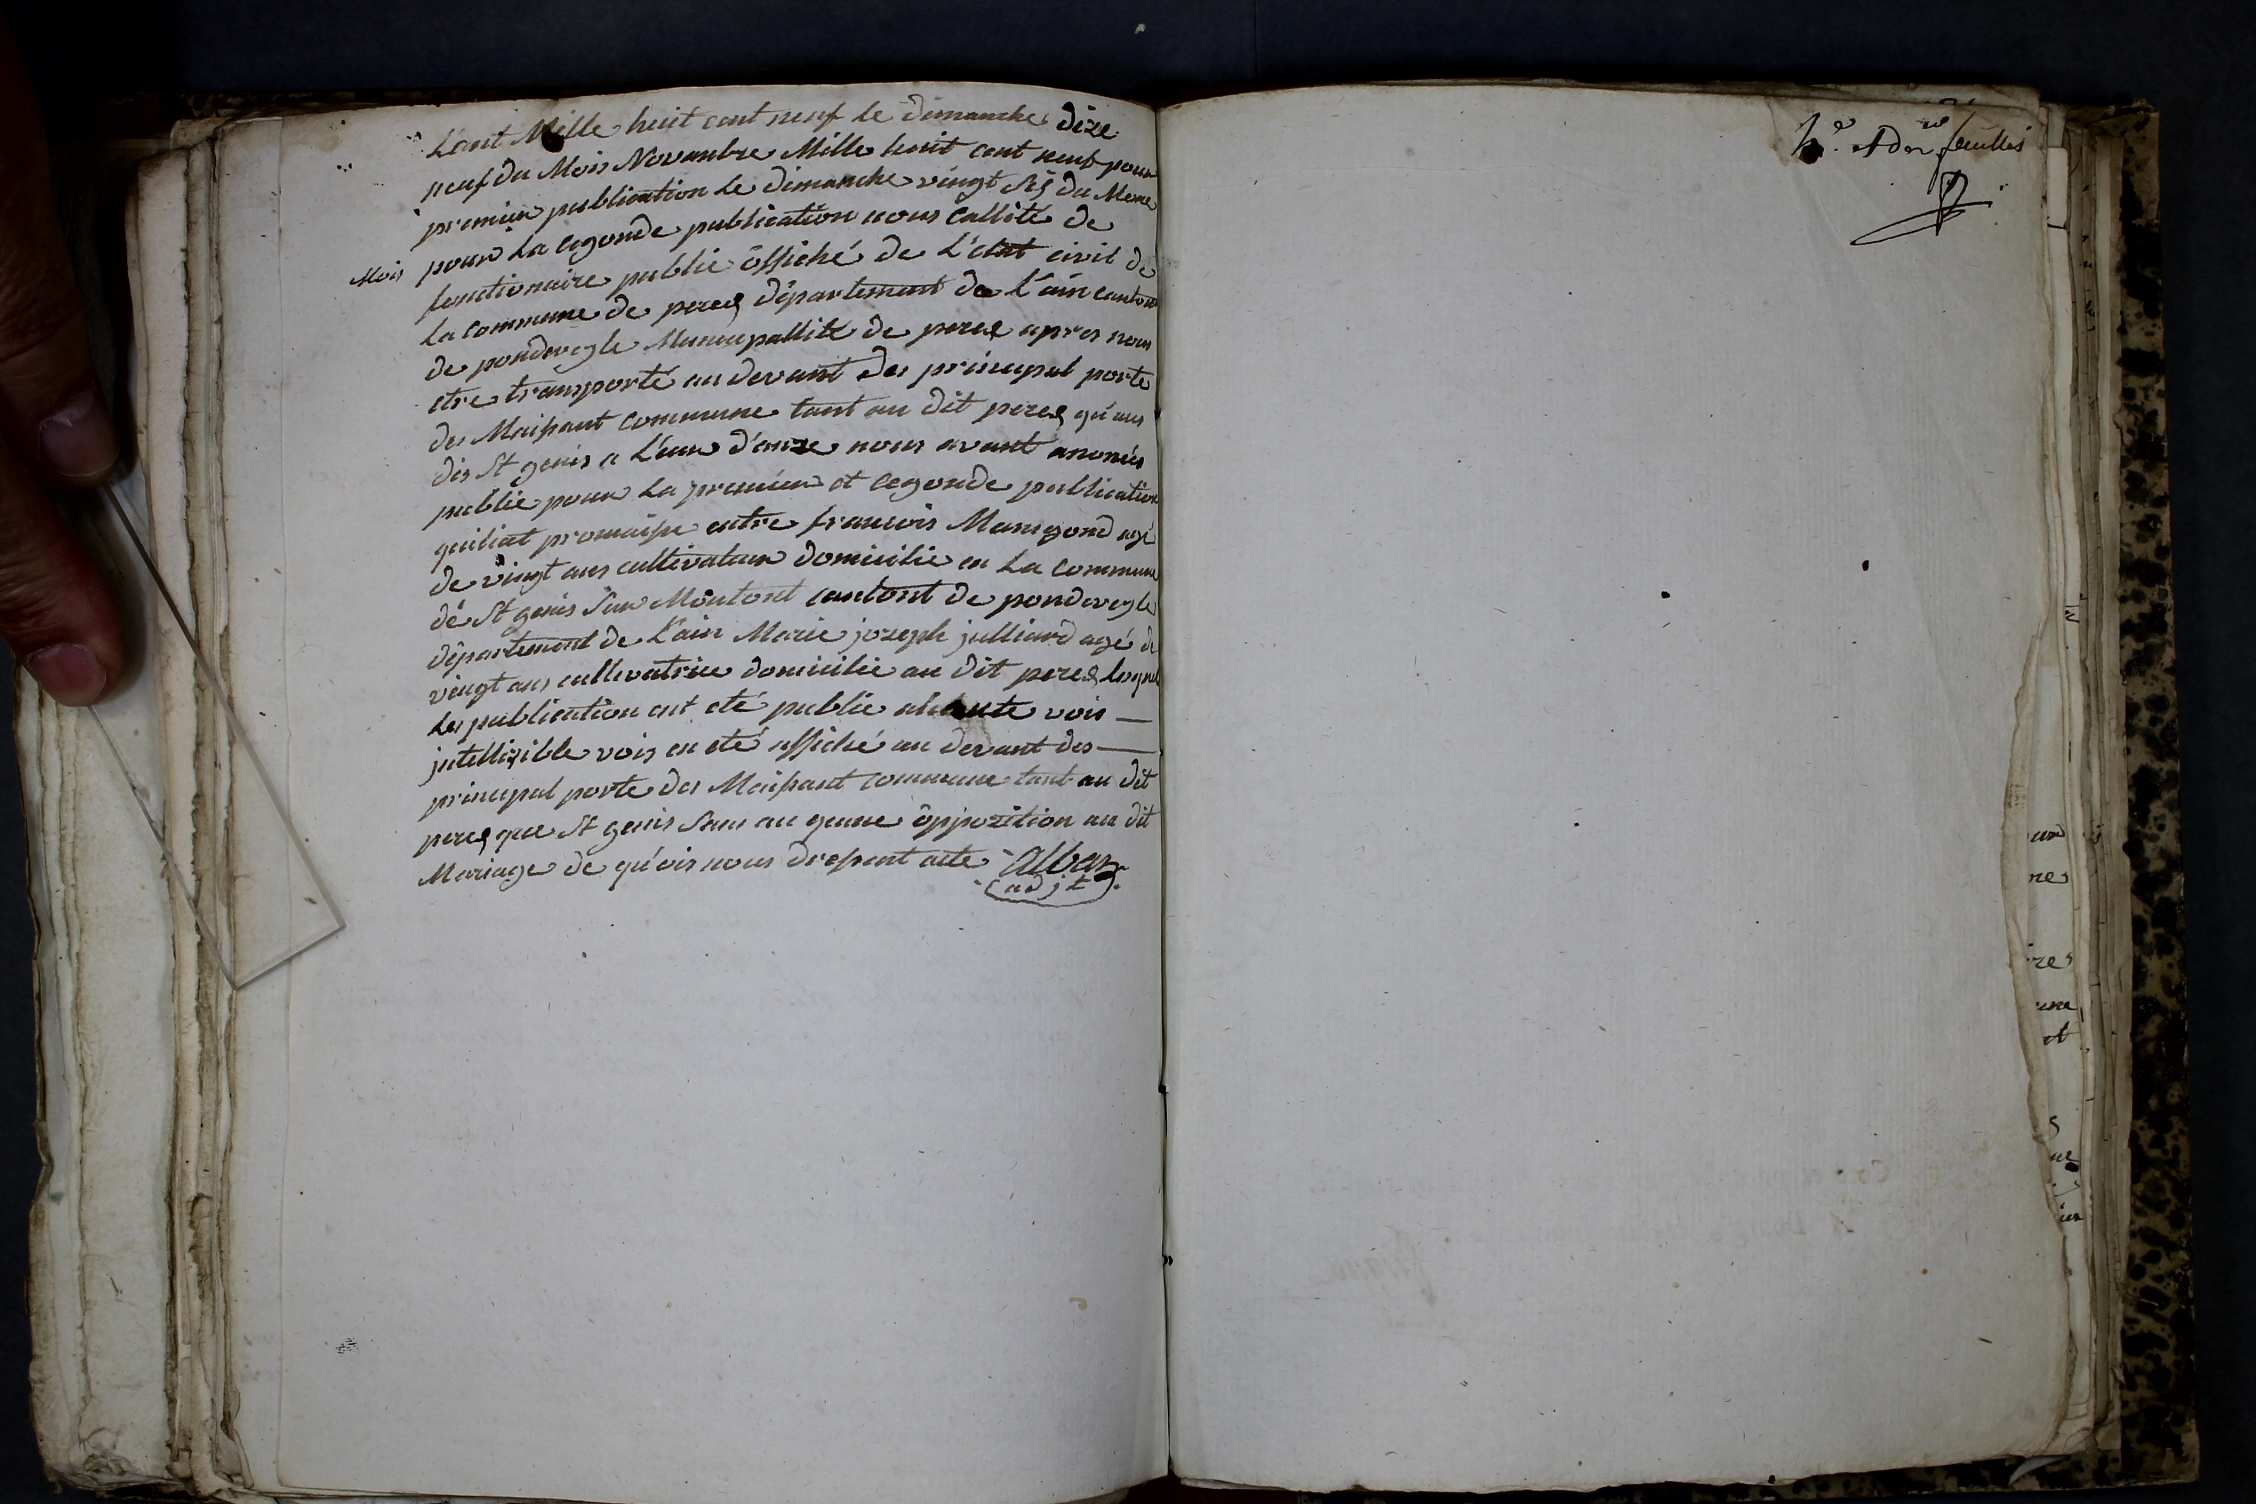 L'ant Mille huit cent neuf le dimanche dixe
neuf du Mois Novanbre Mille huit cent neuf pour
premier publication le dimanche vingt sis du Meme
Mois pour la cegonde publication nous callité de
fonctionaire public offiché de L'état civil de
la commune de perex département de L'ain canton
de pondeveyle Municipallité de perex apres nous
etre transporté au devant des principal porte
des Maisant commune tant au dit perex qu'aus
dis St genis a L'eure d'onze nous avant anonées
publié pour la premier et cegonde publication
entre francois Mangond agé
de vingt ans cultivateur domicilié en la commune
de St genis Sur Montont cantont de pondeveyle
département de L'ain Marie joseph julliard agé de
vingt ans cultivatrice domicilié au dit perex
Les publication ont eté publié vois
jntellizible vois en eté affiché au devant des
principal porte des Maisant commune tant au dit
perex que St genis Sans au qeune opposition au dit
Mariage de qu'ois nous drepent acte alban
adjt
feuilles